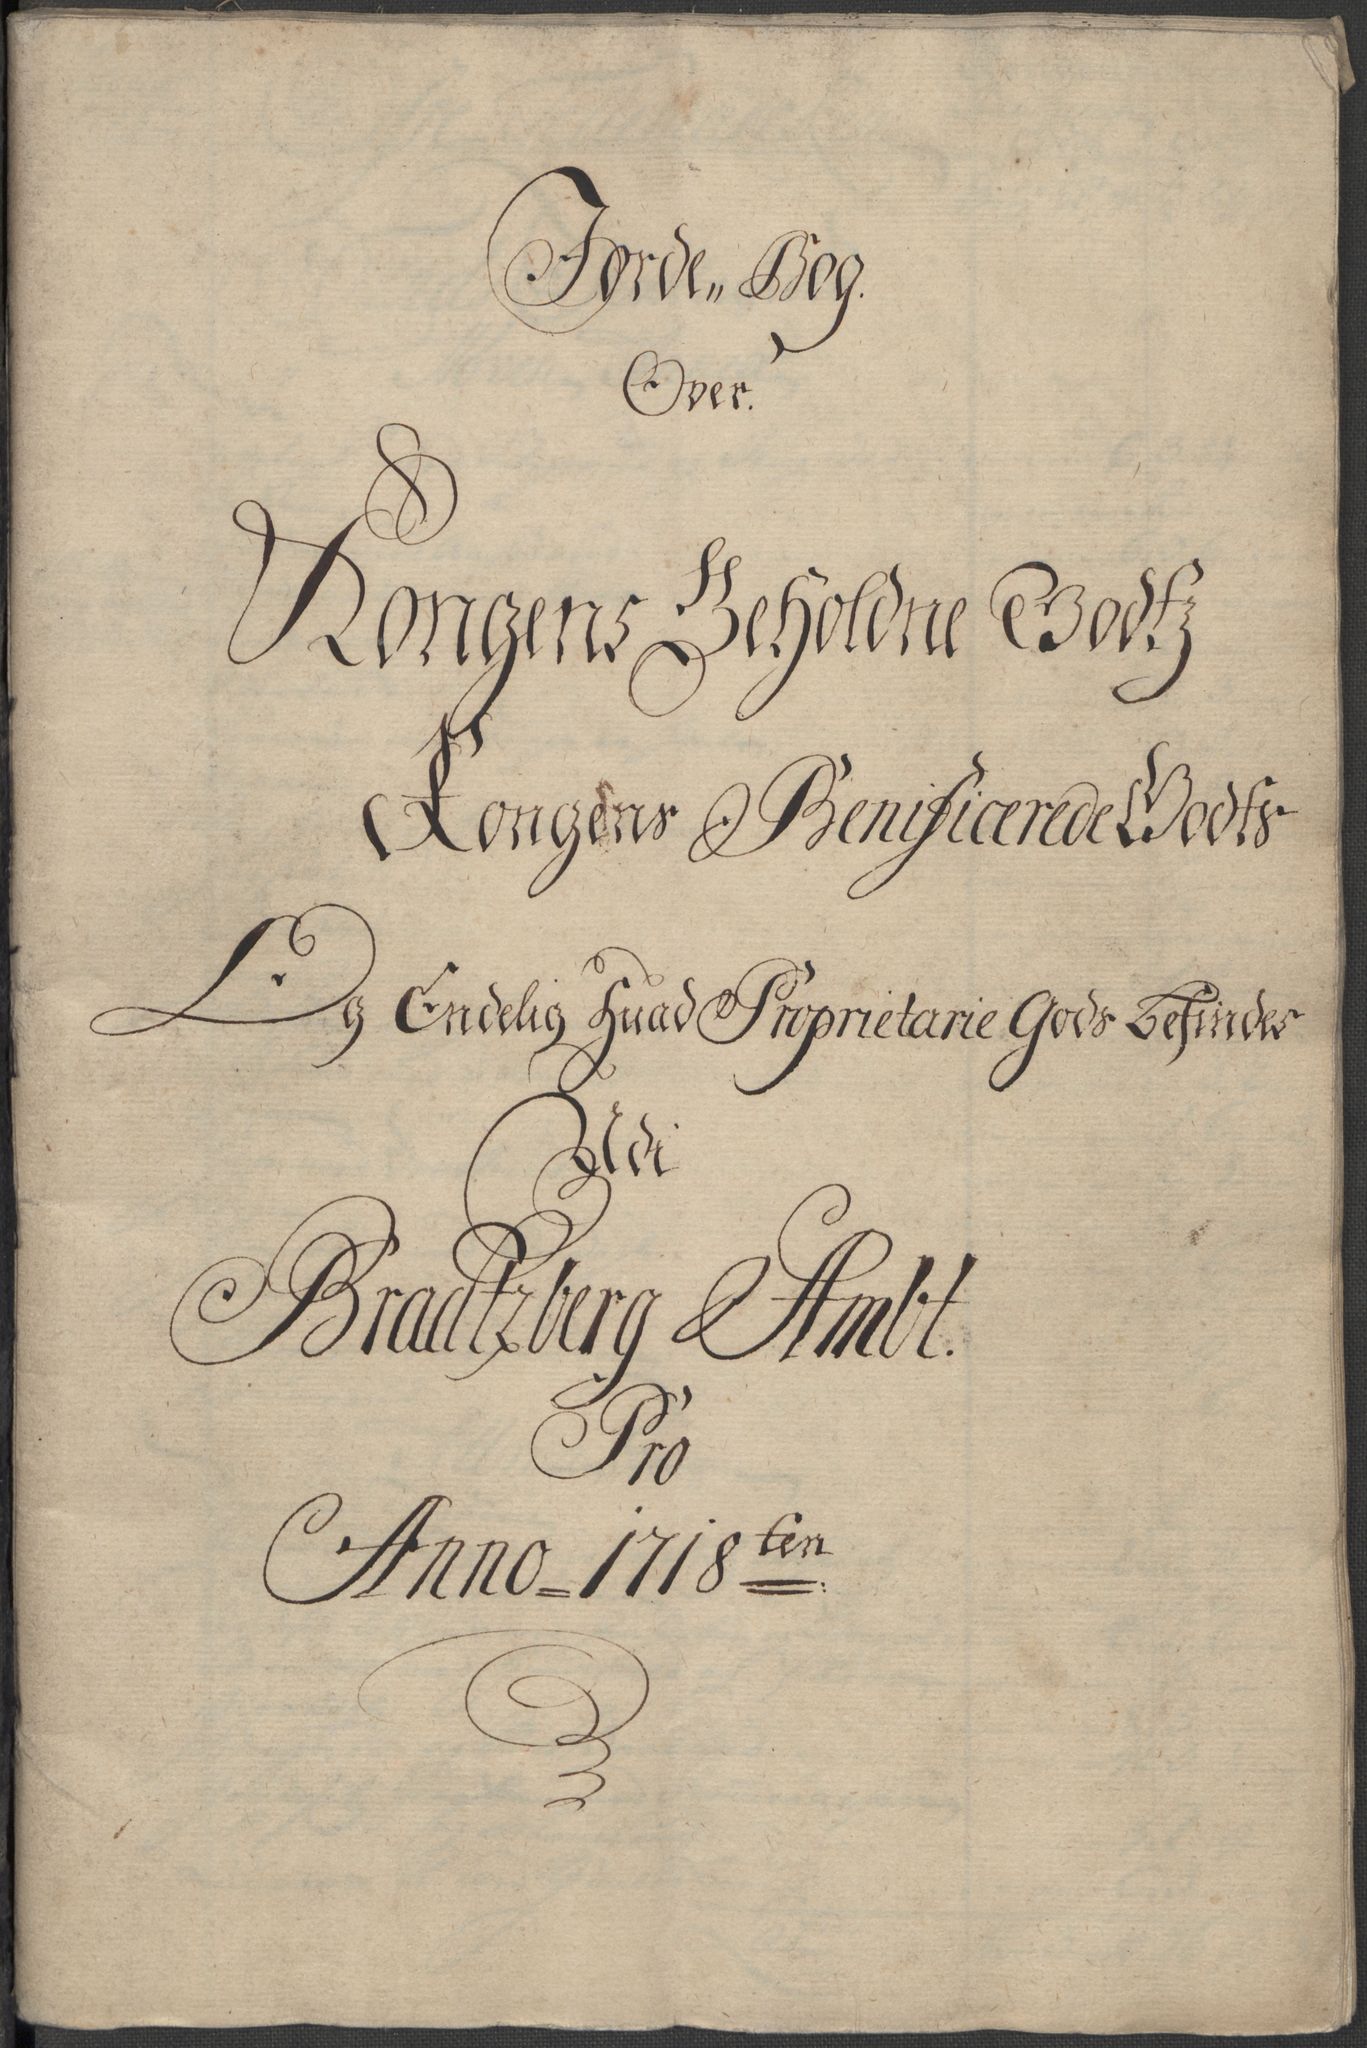 Jorde„ Bog.
Over.
Kongens Beholdne Godtz
Kongens Benificerede Godts
Og Endelig huad Proprietarie Gods befindes
Udi
Bradtzberg Ambt.
Pro
Anno = 1718 ten